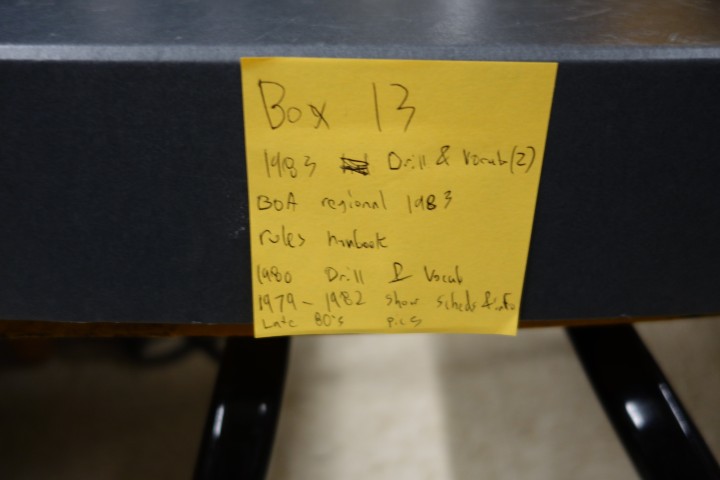 Box 13
1983 Drill & Vocab (2)
BOA regional 1983
rules hanbook
1980 Drill & Vocab
1979 - 1982 show scheds & info
Late 80's pics